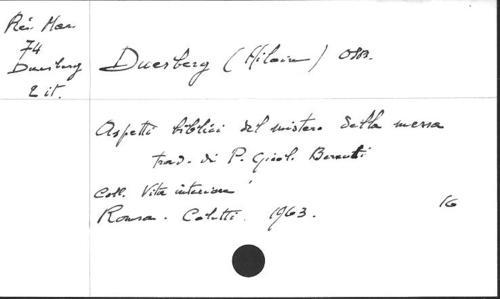 Réi Mar
74
Duesberg
2 it.
Duesberg (Hilaire) OSB.
Aspetti biblici del mistero della messa
trad. di P. Girol. Bernutti
Coll. Vita interiore
Roma. Coletti. 1963.
16